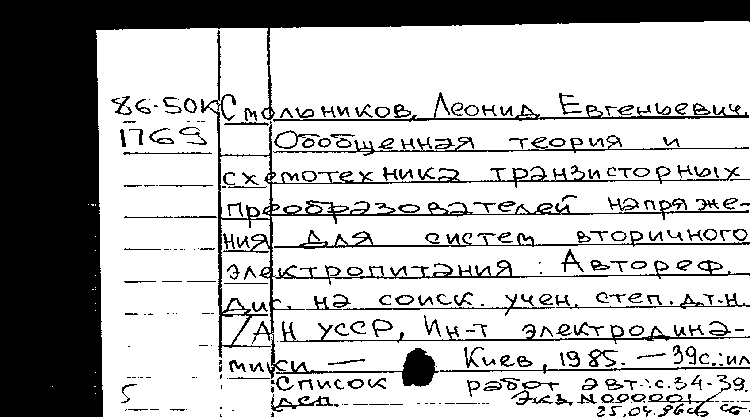 86-50К Смольников, Леонид Евгеньевич.
1769 Обобщенная теория и
схемотехника транзисторных
преобразователей напряже-
ния для систем вторичного
электропитания : Автореф.
дис. на соиск. учен. степ. д.т.н.
/АН УССР, Ин-т электродина-
мики — Киев, 1985. — 39с.:ил
Список работ авт.: с.34-39.
5 деп. Экз. N000001
25.04.86